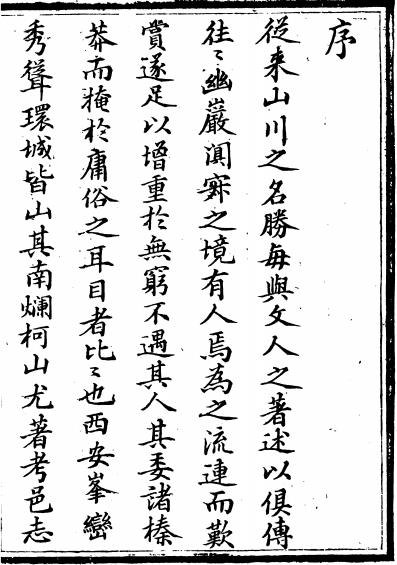 序
從来山川之名勝每與文人之著述以俱傳
往〻幽巖闃寂之境有人焉為之流連而歎
賞遂足以增重於無窮不遇其人其委諸榛
莽而掩於庸俗之耳目者比〻也西安峯巒
秀聳環城皆山其南爛柯山尤著考邑志